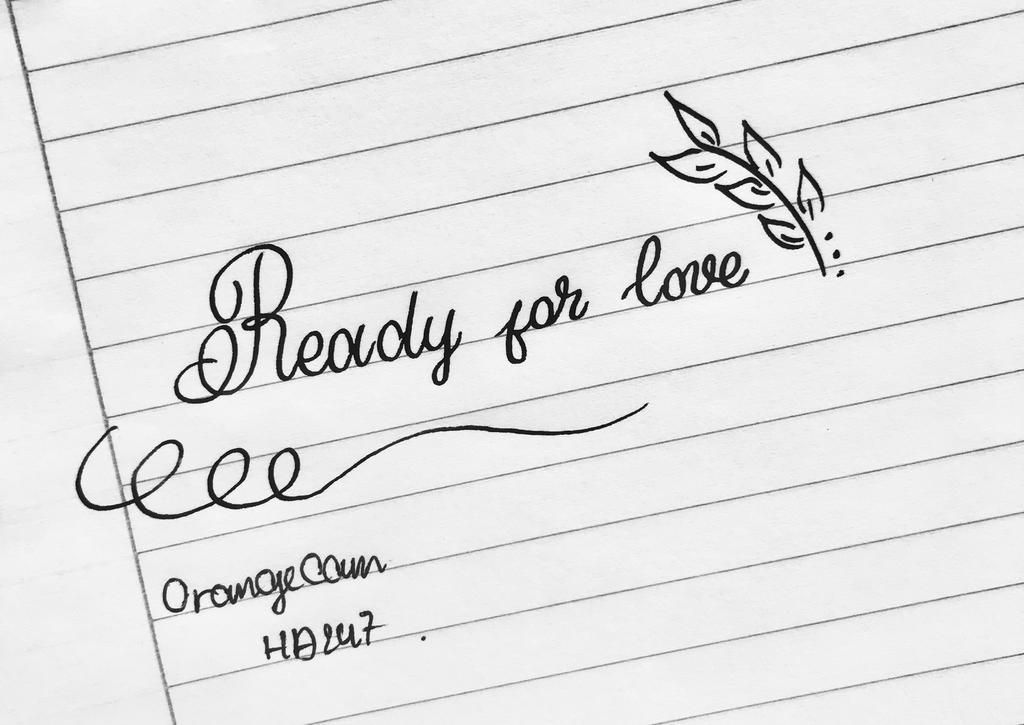 Ready for love
OrangeCaun
HD247